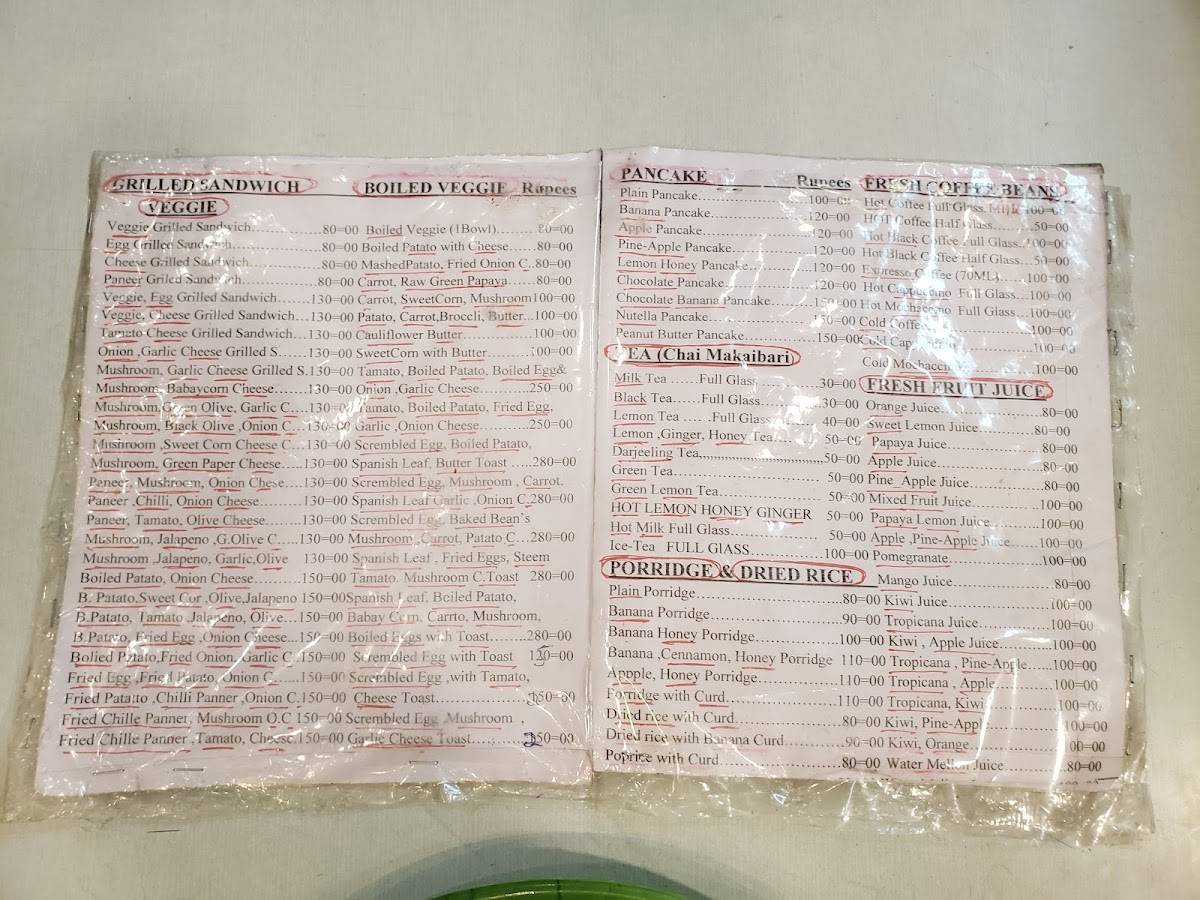 GRILLED SANDWICH
VEGGIE
Veggie Grilled Sandwich..........80=00
Egg Grilled Sandwich..........80=00
Cheese Grilled Sandwich..........80=00
Paneer Griled Sandwich..........80=00
Veggie, Egg Grilled Sandwich.......130=00
Veggie, Cheese Grilled Sandwich...130=00
Tamato Cheese Grilled Sandwich...130=00
Onion ,Garlic Cheese Grilled S......130=00
Mushroom, Garlic Cheese Grilled S.130=00
Mushroom, Babaycorn Cheese.......130=00
Mushroom,Green Olive, Garlic C....130=00
Mushroom, Black Olive ,Onion C...130=00
Mushroom ,Sweet Corn Cheese C...130=00
Mushroom, Green Paper Cheese.....130=00
Paneer, Mushroom, Onion Chese....130=00
Paneer ,Chilli, Onion Cheese.........130=00
Paneer, Tamato, Olive Cheese........130=00
Mushroom, Jalapeno ,G.Olive C.....130=00
Mushroom Jalapeno, Garlic,Olive 130=00
Boiled Patato, Onion Cheese.........150=00
B. Patato,Sweet Cor ,Olive,Jalapeno 150=00
B.Patato, Tamato ,Jalapeno, Olive...150=00
B.Patato, Fried Egg ,Onion Cheese...150=00
Bolied Patato,Fried Onion, Garlic C .150=00
Fried Egg ,Fried Patato ,Onion C......150=00
Fried Patato ,Chilli Panner ,Onion C.150=00
Fried Chille Panner, Mushroom O.C 150=00
Fried Chille Panner ,Tamato, Cheese.150=00
BOILED VEGGIE Rupees
Boiled Veggie (1Bowl)..........80=00
Boiled Patato with Cheese......80=00
MashedPatato, Fried Onion C..80=00
Carrot, Raw Green Papaya......80=00
Carrot, SweetCorn, Mushroom100=00
Patato, Carrot,Broccli, Butter...100=00
Cauliflower Butter................100=00
SweetCorn with Butter..........100=00
Tamato, Boiled Patato, Boiled Egg&
Onion ,Garlic Cheese............250=00
Tamato, Boiled Patato, Fried Egg,
Garlic ,Onion Cheese............250=00
Scrembled Egg, Boiled Patato,
Spanish Leaf, Butter Toast .....280=00
Scrembled Egg, Mushroom , Carrot.
Spanish Leaf Garlic ,Onion C.280=00
Scrembled Egg, Baked Bean's
Mushroom ,Carrot, Patato C...280=00
Spanish Leaf , Fried Eggs, Steem
Tamato. Mushroom C.Toast 280=00
Spanish Leaf, Bciled Patato,
Babay Corn, Carrto, Mushroom,
Boiled Eggs with Toast........280=00
Scrembled Egg with Toast 120=00
Scrembled Egg ,with Tamato,
Cheese Toast................150=00
Scrembled Egg ,Mushroom ,
Garlic Cheese Toast.......250=00
PANCAKE Rupees
Plain Pancake....................100=00
Banana Pancake..................120=00
Apple Pancake...................120=00
Pine-Apple Pancake..............120=00
Lemon Honey Pancake..........120=00
Chocolate Pancake...............120=00
Chocolate Banana Pancake......150=00
Nutella Pancake..................150=00
Peanut Butter Pancake...........150=00
TEA (Chai Makaibari)
Milk Tea ......Full Glass..........30=00
Black Tea......Full Glass..........30=00
Lemon Tea ......Full Glass........40=00
Lemon ,Ginger, Honey Tea......50=00
Darjeeling Tea,,,,,,,,,,,,,,,,,,,,,,,,50=00
Green Tea........................50=00
Green Lemon Tea................50=00
HOT LEMON HONEY GINGER 50=00
Hot Milk Full Glass.............50=00
Ice-Tea FULL GlASS............100=00
PORRIDGE & DRIED RICE
Plain Porridge....................80=00
Banana Porridge..................90=00
Banana Honey Porridge..........100=00
Banana ,Cennamon, Honey Porridge 110=00
Appple, Honey Porridge..........110=00
Porridge with Curd...............110=00
Dried rice with Curd.............80=00
Dried rice with Banana Curd.....90=00
Poprice with Curd................80=00
FRESH COFFEE BEANS
Hot Coffee Full Glass. Milk 100=00
HOT Coffee Half Glass.......50=00
Hot Black Coffee Full Glass..100=00
Hot Black Coffee Half Glass...50=00
Espresso Coffee (70ML).......100=00
Hot Cappuccino Full Glass....100=00
Hot Mochaccno Full Glass...100=00
Cold Coffee..................100=00
Cold Cap..........100=00
Cold Mochaccin..............100=00
FRESH FRUIT JUICE
Orange Juice.................80=00
Sweet Lemon Juice...........80=00
Papaya Juice.................80=00
Apple Juice..................80=00
Pine_Apple Juice.............80=00
Mixed Fruit Juice............100=00
Papaya Lemon Juice..........100=00
Apple ,Pine-Apple Juice......100=00
Pomegranate.................100=00
Mango Juice.................80=00
Kiwi Juice...................100=00
Tropicana Juice..............100=00
Kiwi , Apple Juice...........100=00
Tropicana , Pine-Apple......100=00
Tropicana , Apple............100=00
Tropicana, Kiwi..............100=00
Kiwi, Pine-Apple.............100=00
Kiwi, Orange.................100=00
Water Mellon Juice...........80=00